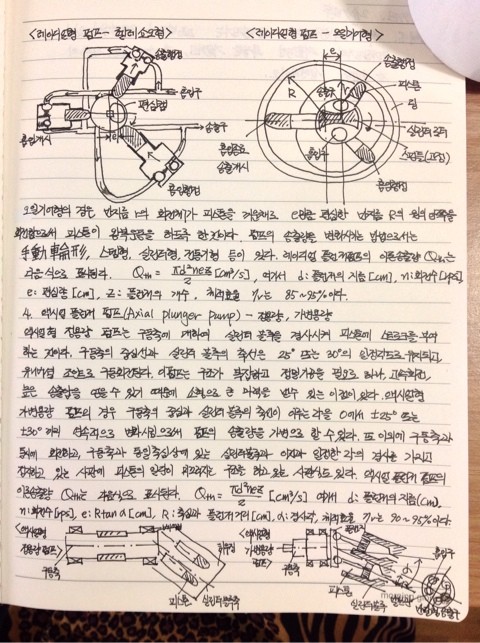 <레이디얼형 펌프 - 할레소오형>
<레이디얼형 펌프 - 오일기어형>
송출행정
흡입구
편심륜
송출구
흡입행정
흡입행정
e
송출행정
피스톤
링
실린더 로터
스핀들(고정)
R
송출구
흡입구
흡입종료
송출개시
흡입행정
오일기어형의 경우 반지름 r의 회전체가 피스톤을 끼운채로 e만큼 편심한 반지름 R의 원의 안쪽을
회전함으로써 피스톤이 왕복운동을 하도록 한 것이다. 펌프의 송출량을 변화시키는 방법으로서는
手動車輪形, 스템형, 실린더형, 전동기형 등이 있다. 레이디얼 플런저펌프의 이론송출량 Qth는
다음 식으로 표시된다. Qth = πd²neZ/2 [cm³/s], 여기서 d: 플런저의 지름[cm], n: 회전수[rps],
e: 편심량[cm], Z: 플런저의 개수, 체적효율 ηv는 85~95%이다.
4. 액시얼 플런저 펌프(Axial plunger pump) - 정용량, 가변용량
액시얼형 정용량 펌프는 구동축에 대하여 실린더 블록을 경사시켜 피스톤에 스트로크를 부여
하는 것이다. 구동축의 중심선과 실린더 블록의 축선은 25° 또는 30°의 일정각도로 유지되고,
유니버설 조인트로 구동회전된다. 이 펌프는 구조가 복잡하고 정밀가공을 필요로 하나, 고속회전,
높은 송출압을 얻을 수 있기 때문에 소형으로 큰 마력을 낼 수 있는 이점이 있다. 액시얼형
가변용량 펌프의 경우 구동축의 중심과 실린더 블록의 축선이 이루는 각을 0에서 ±25° 또는
±30°까지 연속적으로 변화시킴으로써 펌프의 송출량을 가변으로 할 수 있다. 또 이외에 구동축과
함께 회전하고, 구동축과 동일 중심상에 있는 실린더블록과 이것과 일정한 각의 경사를 가지고
고정되고 있는 사판에 피스톤의 일단이 미끄러지는 구조를 하고 있는 사판식도 있다. 액시얼 플런저 펌프의
이론송출량 Qth는 다음식으로 표시된다. Qth = πd²neZ/2 [cm³/s] 여기서 d: 플런저의 지름(cm),
n: 회전수[rps], e: Rtanα[cm], R: 축심과 플런저 거리[cm], α: 경사각, 체적효율 ηv는 90~95%이다.
<액시얼형
정용량
펌프>
구동축
피스톤
실린더블록
<액시얼형
가변용량
펌프>
구동축
피스톤
실린더블록
흡입구